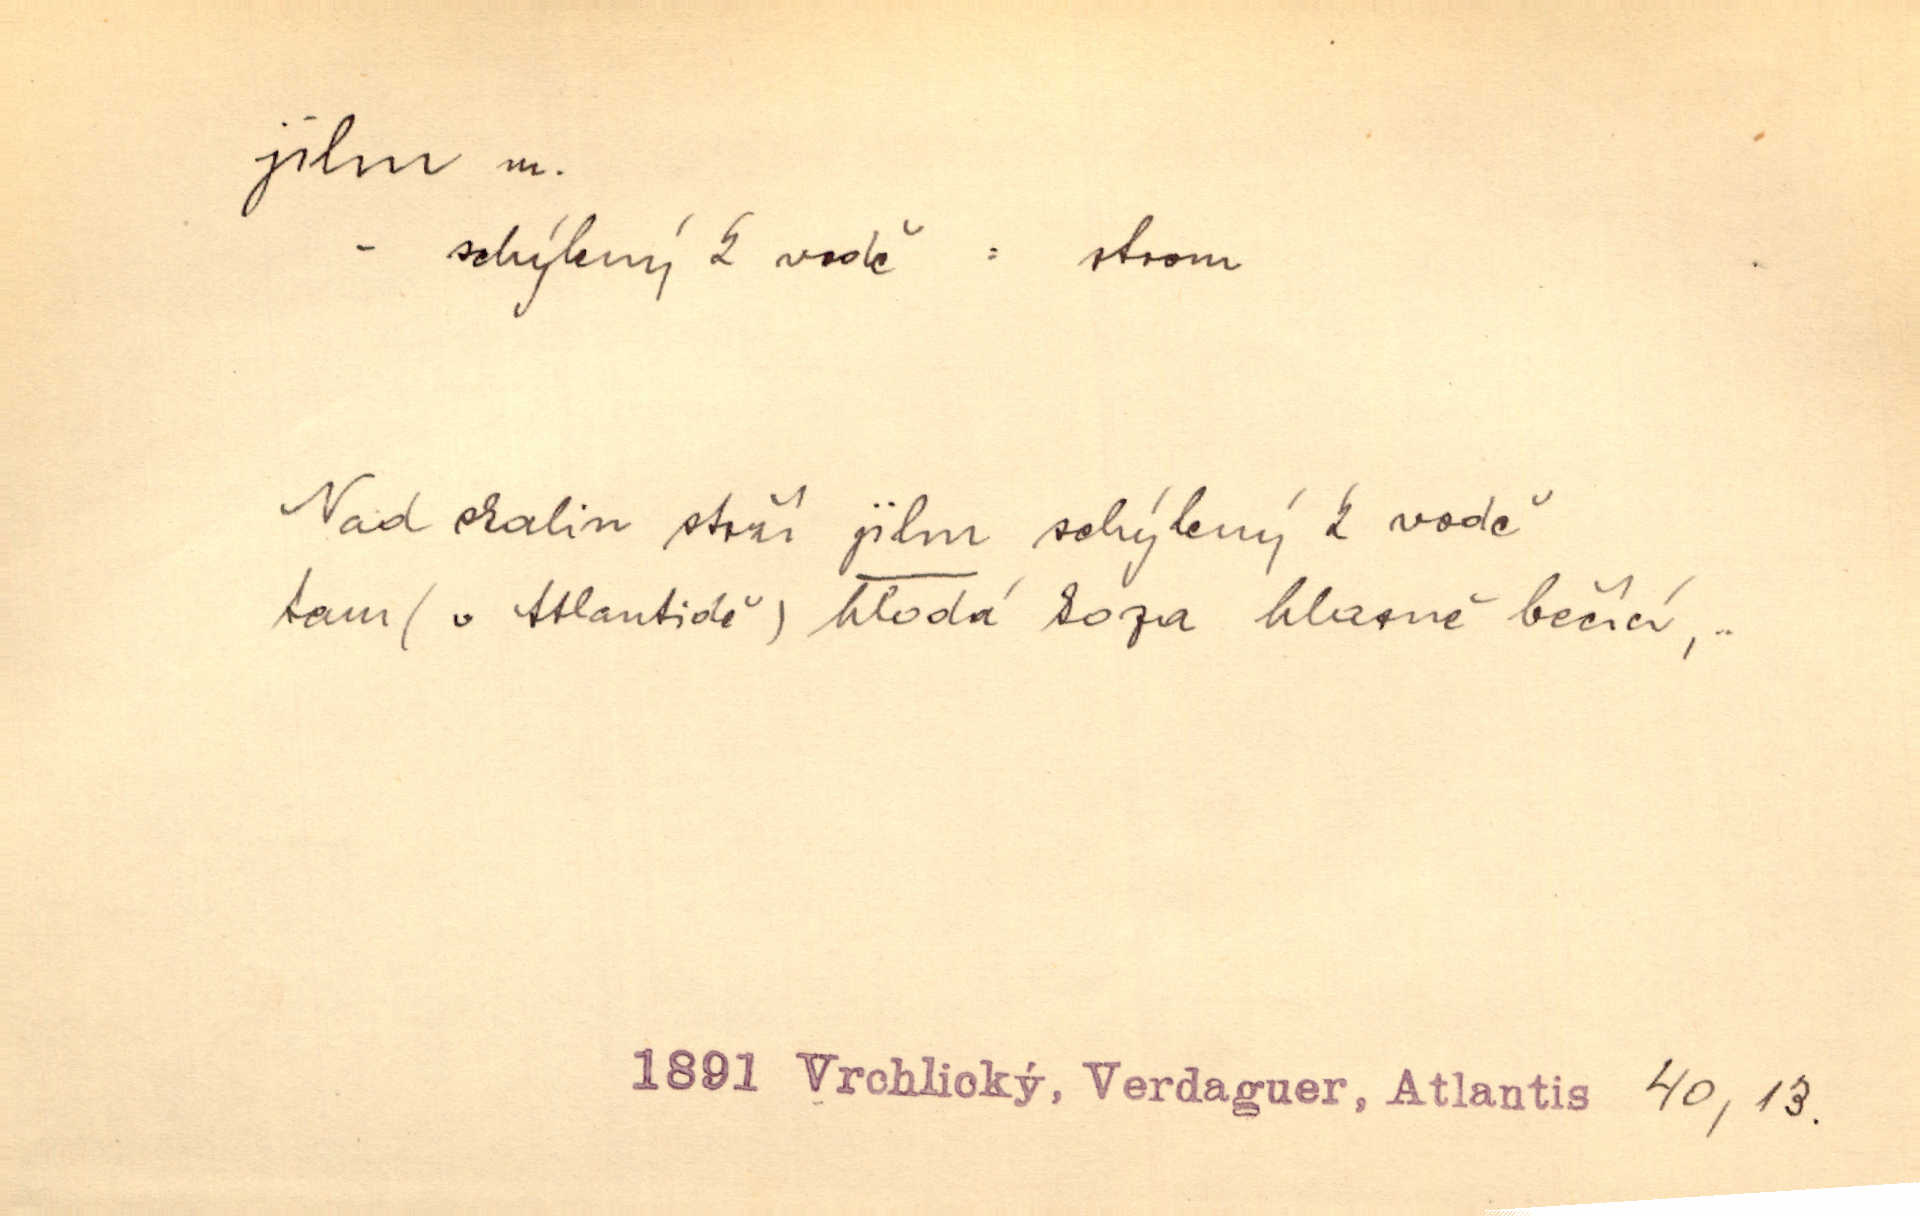 jilm m.
- schýlený k vodě : strom
Nad skalin strží jilm schýlený k vodě
tam (v Atlantidě) hlodá koza hlasně bečící, ..
1891 Vrchlický, Verdaguer, Atlantis 40, 13.